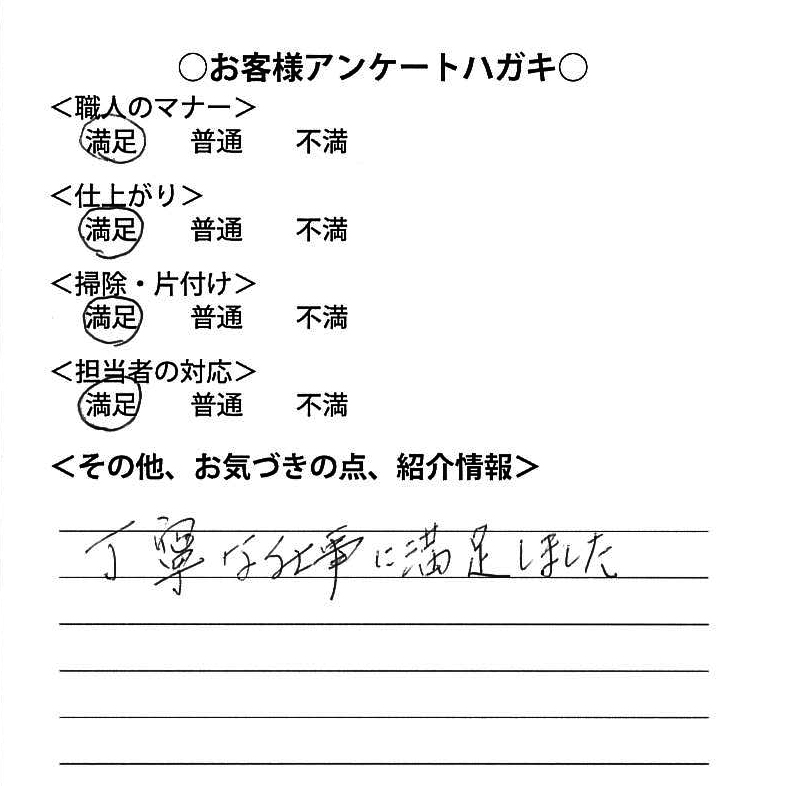 ○お客様アンケートハガキ○
＜職人のマナー＞
満足 普通 不満
＜仕上がり＞
満足 普通 不満
＜掃除・片付け＞
満足 普通 不満
＜担当者の対応＞
満足 普通 不満
＜その他、お気づきの点、紹介情報＞
丁寧な仕事に満足しました